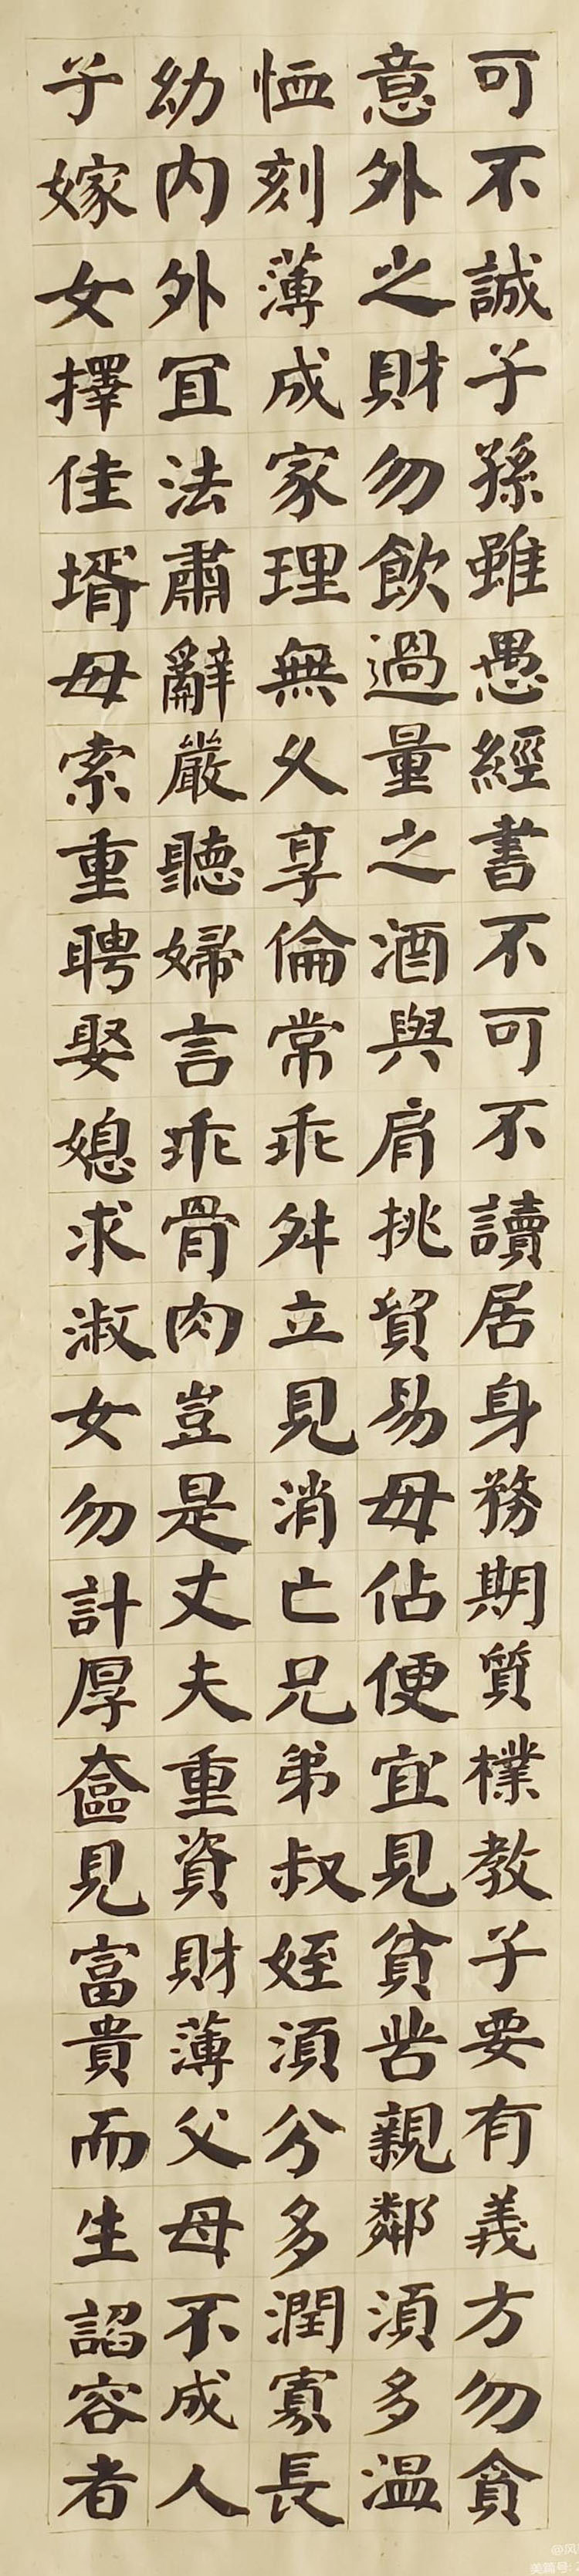 可不誠子孫雖愚經書不可不讀居身務期質樸教子要有義方勿貪
意外之財勿飲過量之酒與肩挑貿易毋佔便宜見貧苦親鄰須多温
恤刻薄成家理無久享倫常乖舛立見消亡兄弟叔姪須分多潤寡長
幼内外宜法肅辭嚴聽婦言乖骨肉豈是丈夫重資財薄父母不成人
子嫁女擇佳壻毋索重聘娶媳求淑女勿計厚奩見富貴而生諂容者
@风
美篇号: